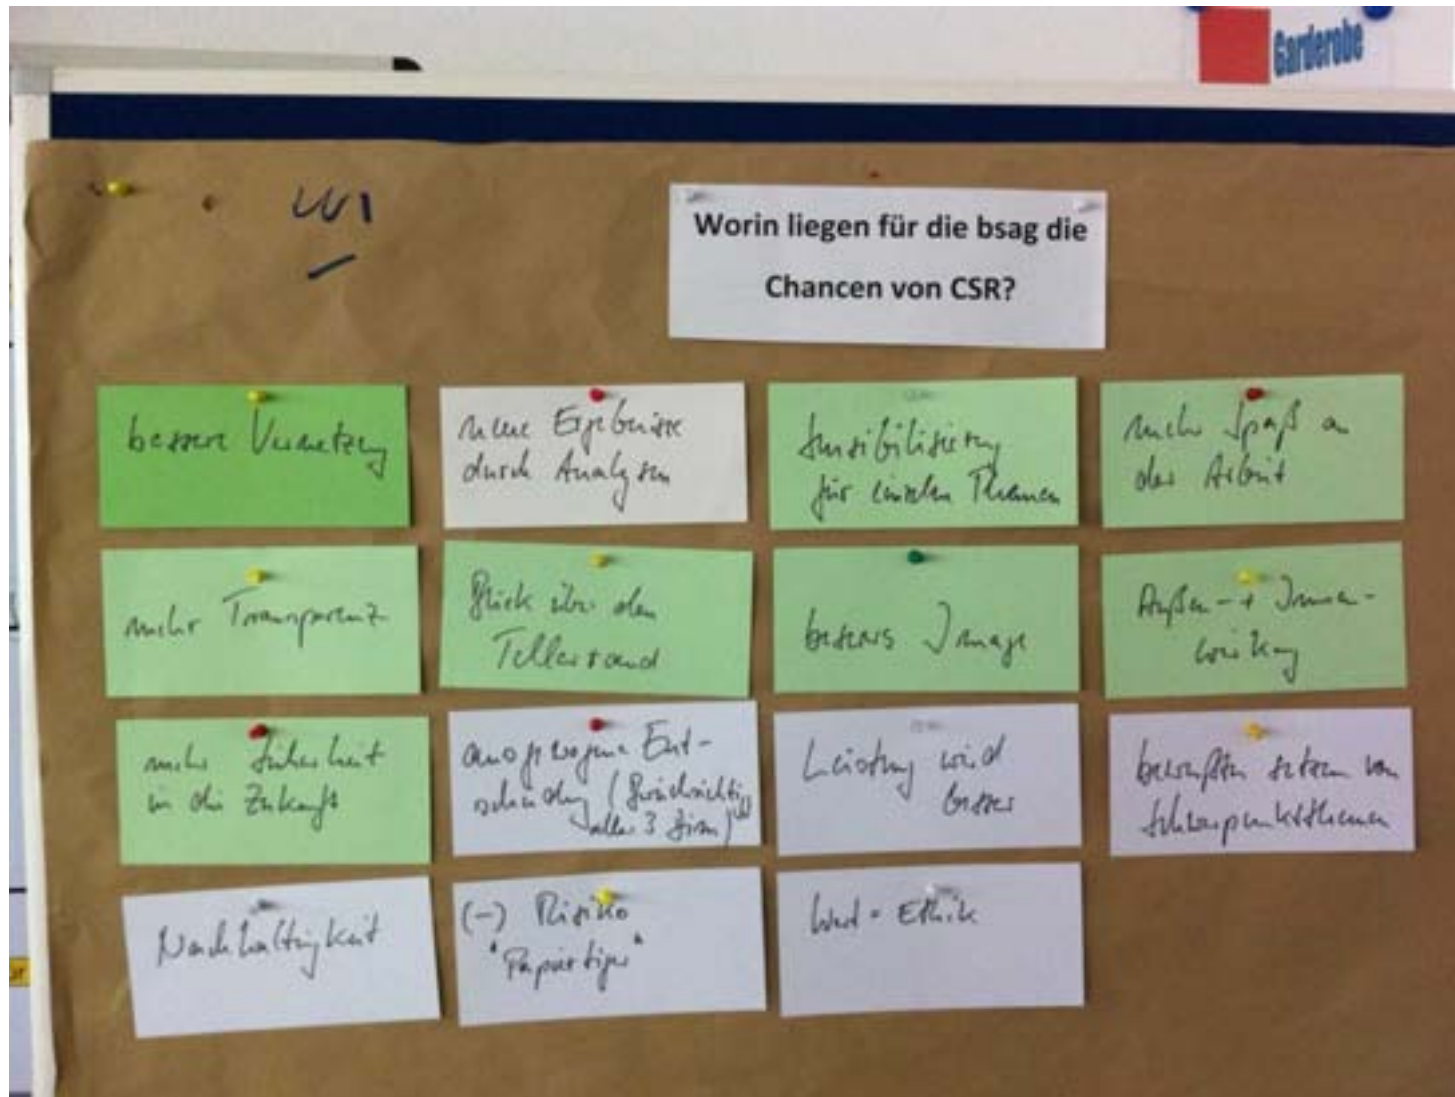 Garderobe
W1
Worin liegen für die bsag die
Chancen von CSR?
bessere Vernetzung
neue Ergebnisse
durch Analysen
Sensibilisierung
für einzelne Themen
mehr Spaß an
der Arbeit
mehr Transparenz
Blick über den
Tellerrand
besseres Image
Außen- + Innen-
wirkung
mehr Sicherheit
in die Zukunft
ausgewogene Ent-
scheidung (Berücksichtig
aller 3
Leistung wird
besser
setzen von
Schwerpunktthemen
Nachhaltigkeit
(-) Risiko
"Papiertiger"
Wert - Ethik